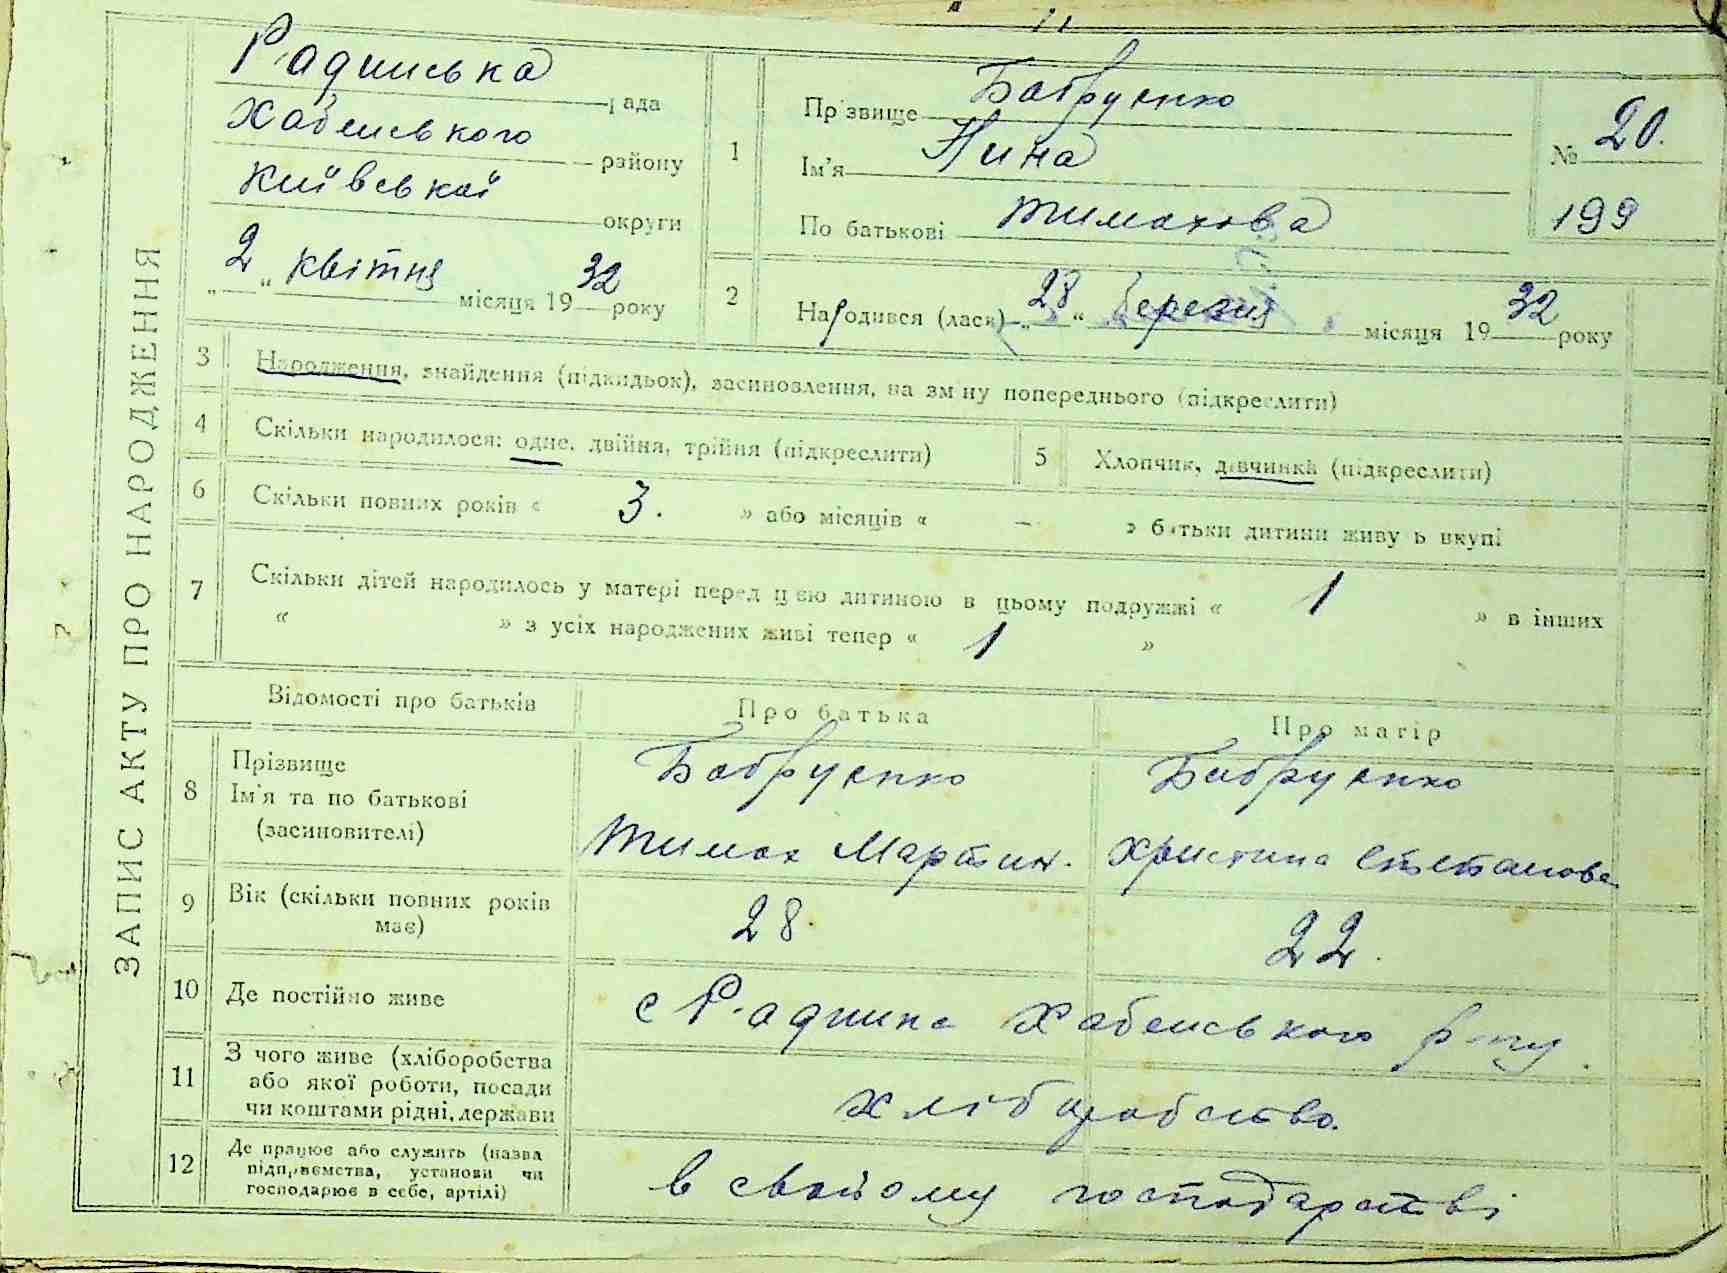 ЗАПИС АКТУ ПРО НАРОДЖЕННЯ
Радинська рада
Хабенського району
Київської округи
„2“ квітня місяця 1932 року
1
Прізвище Бобруенко
Ім'я Нина
По батькові Тимохова
№ 20.
199
2
Народився (лася) „28“ березня місяця 1932 року
3 Народження, знайдення (підкидьок), засиновлення, на зміну попереднього (підкреслити)
4 Скільки народилося: одне, двійня, трійня (підкреслити)
5 Хлопчик, дівчинка (підкреслити)
6 Скільки повних років « 3. » або місяців « – » батьки дитини живуть вкупі
7 Скільки дітей народилось у матері перед цією дитиною в цьому подружжі « 1 » в інших
« » з усіх народжених живі тепер « 1 »
Відомості про батьків Про батька Про матір
8 Прізвище
Ім'я та по батькові
(засиновителі)
Бобруенко
Тимох Мартин.
Бобруенко
Христина Степанова
9 Вік (скільки повних років
має)
28.
22.
10 Де постійно живе с Радинка Хабенського р-ну.
11 З чого живе (хліборобства
або якої роботи, посади
чи коштами рідні, держави
хліборобство.
12 Де працює або служить (назва
підприємства, установи чи
господарює в себе, артілі)
в свойому господарстві